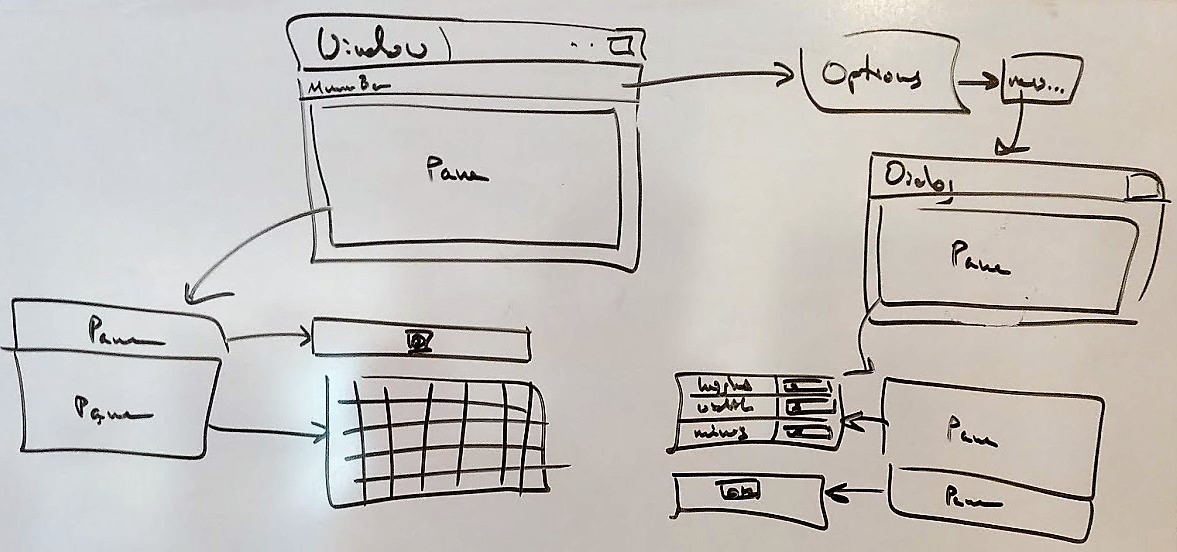 Window
Menu Bar
Pane
Options
new...
Dialog
Pane
Pane
Pane
height
width
mines
OK
Pane
Pane